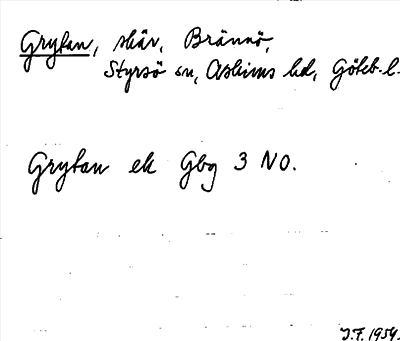 Grytan, skär, Brännö,
Styrsö sn, Askims hd, Göteb. l.
Grytan ek Gbg 3 NO.
J.F. 1954.